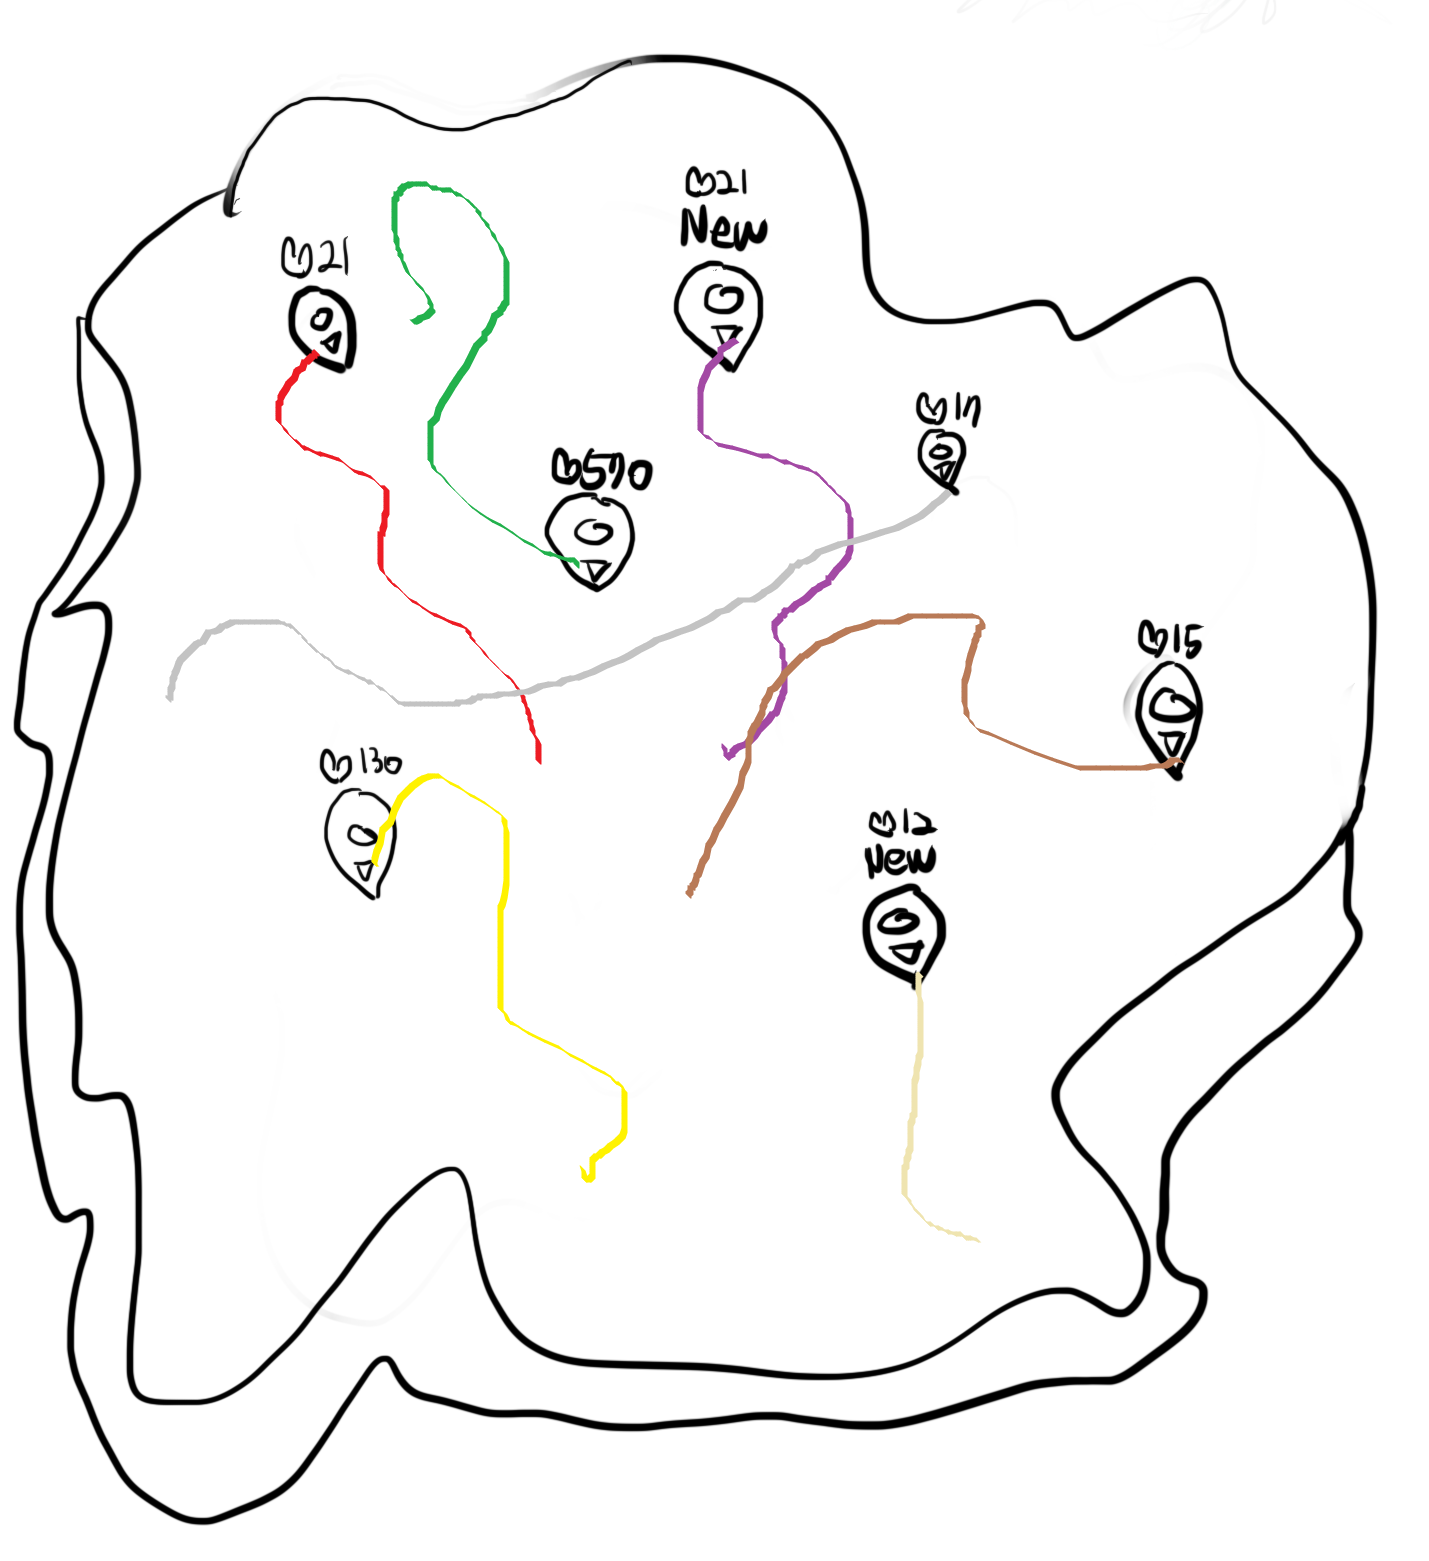 ♡21
New
♡21
♡17
♡570
♡15
♡130
♡12
New